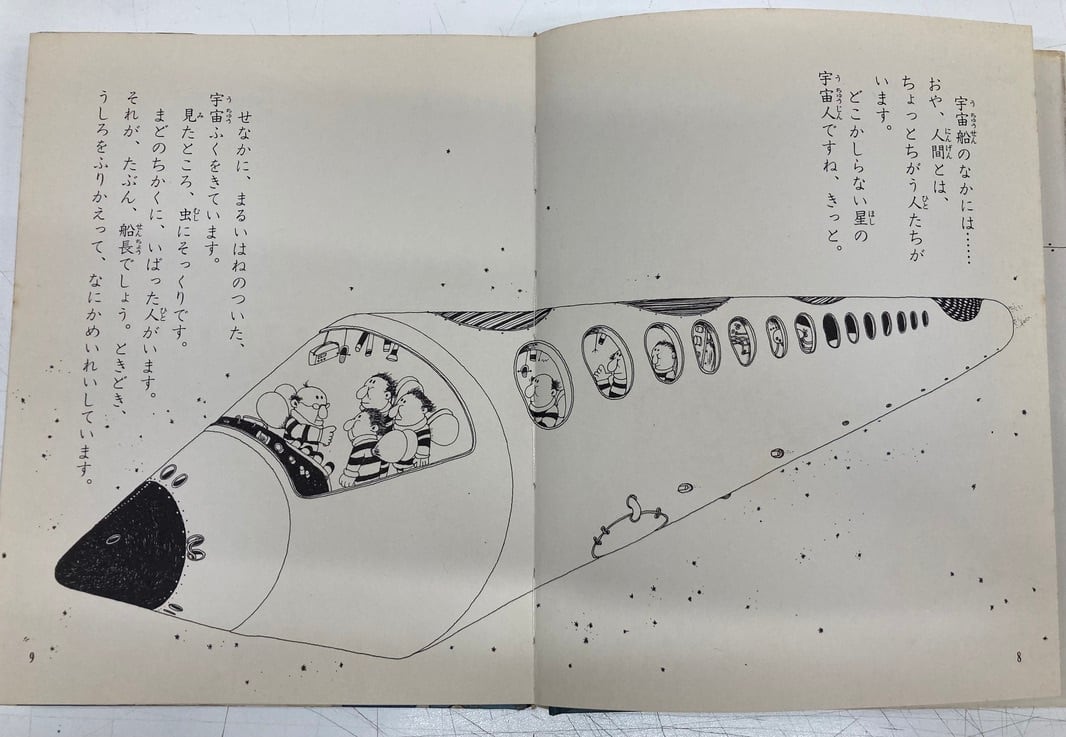 宇宙船のなかには……
おや、人間とは、
ちょっとちがう人たちが
います。
どこかしらない星の
宇宙人ですね、きっと。
8
せなかに、まるいはねのついた、
宇宙ふくをきています。
見たところ、虫にそっくりです。
まどのちかくに、いばった人がいます。
それが、たぶん、船長でしょう。ときどき、
うしろをふりかえって、なにかめいれいしています。
9